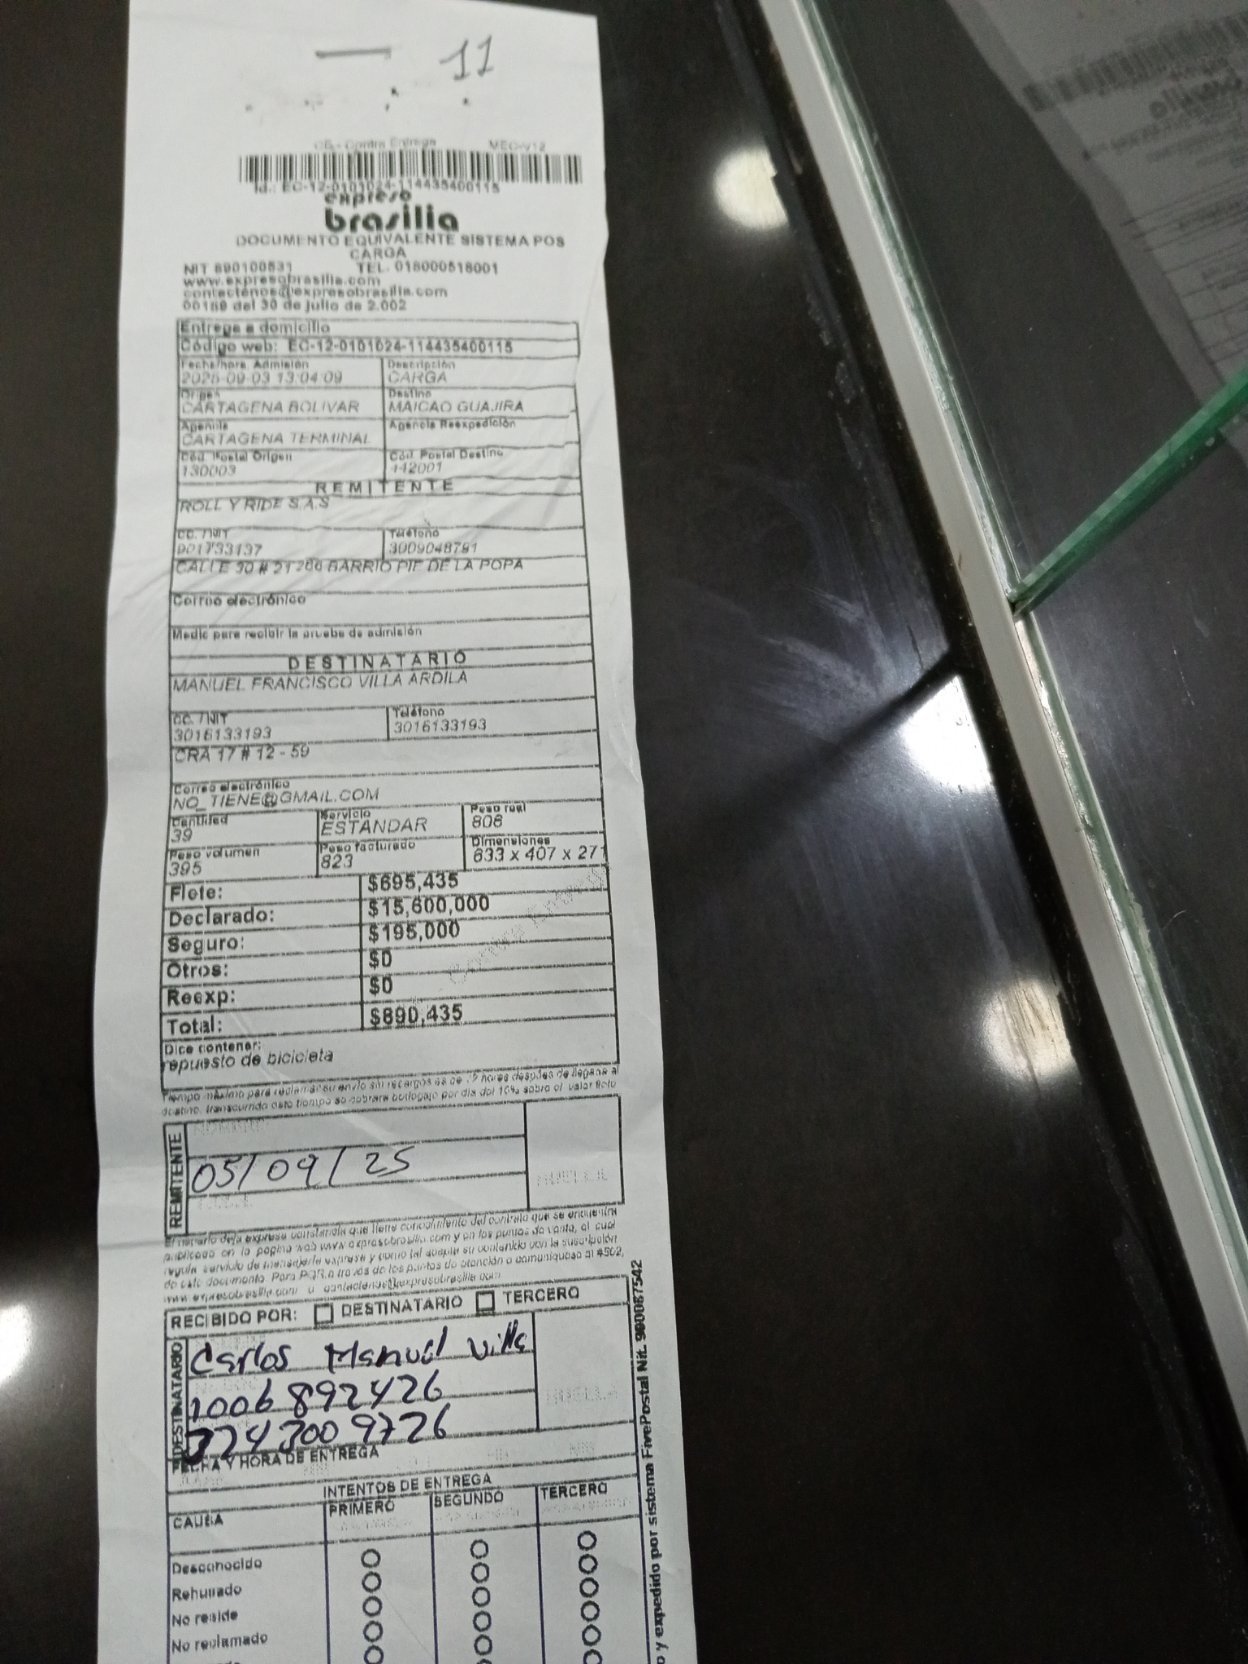 11
CE - Contra Entrega MEC-V12
Id.: EC-12-0101024-114435400115
expreso
brasilia
DOCUMENTO EQUIVALENTE SISTEMA POS
CARGA
NIT 890100531 TEL. 018000518001
www.expresobrasilia.com
contactenos@expresobrasilia.com
00189 del 30 de julio de 2.002
Entrega a domicilio
Código web: EC-12-0101024-114435400115
Fecha/hora Admisión Descripción
2025-09-03 13:04:09 CARGA
Origen Destino
CARTAGENA BOLIVAR MAICAO GUAJIRA
Agencia Agencia Reexpedición
CARTAGENA TERMINAL
Cód. Postal Origen Cód. Postal Destino
130003 442001
REMITENTE
ROLL Y RIDE S.A.S
CC. / NIT Teléfono
901733137 3009048781
CALLE 30 # 21 200 BARRIO PIE DE LA POPA
Correo electrónico
Medio para recibir la prueba de admisión
DESTINATARIO
MANUEL FRANCISCO VILLA ARDILA
CC. / NIT Teléfono
3016133193 3016133193
CRA 17 # 12 - 59
Correo electrónico
NO_TIENE@GMAIL.COM
Cantidad Servicio Peso real
39 ESTANDAR 808
Peso volumen Peso facturado Dimensiones
395 823 633 x 407 x 271
Flete: $695,435
Declarado: $15,600,000
Seguro: $195,000
Otros: $0
Reexp: $0
Total: $890,435
Contra Entrega
Dice contener:
repuesto de bicicleta
Tiempo máximo para reclamar su envío sin recargos es de horas después de llegada al
destino, transcurrido este tiempo se cobrará bodegaje por día del 10% sobre el valor flete
REMITENTE
05/09/25
HUELLA
El usuario deja expresa constancia que tiene conocimiento del contrato que se encuentra
publicado en la página web www.expresobrasilia.com y en los puntos de venta, el cual
regula servicio de mensajería expresa y como tal acepta su contenido con la suscripción
de este documento. Para PQR a través de los puntos de atención o comuníquese al #502,
www.expresobrasilia.com o contactenos@expresobrasilia.com
RECIBIDO POR: DESTINATARIO TERCERO
DESTINATARIO
Carlos Manuel Villa
1006892426
3243009726
HUELLA
FECHA Y HORA DE ENTREGA
INTENTOS DE ENTREGA
CAUSA PRIMERO SEGUNDO TERCERO
Desconocido
Rehusado
No reside
No reclamado
o y expedido por sistema FivePostal Nit. 900087542